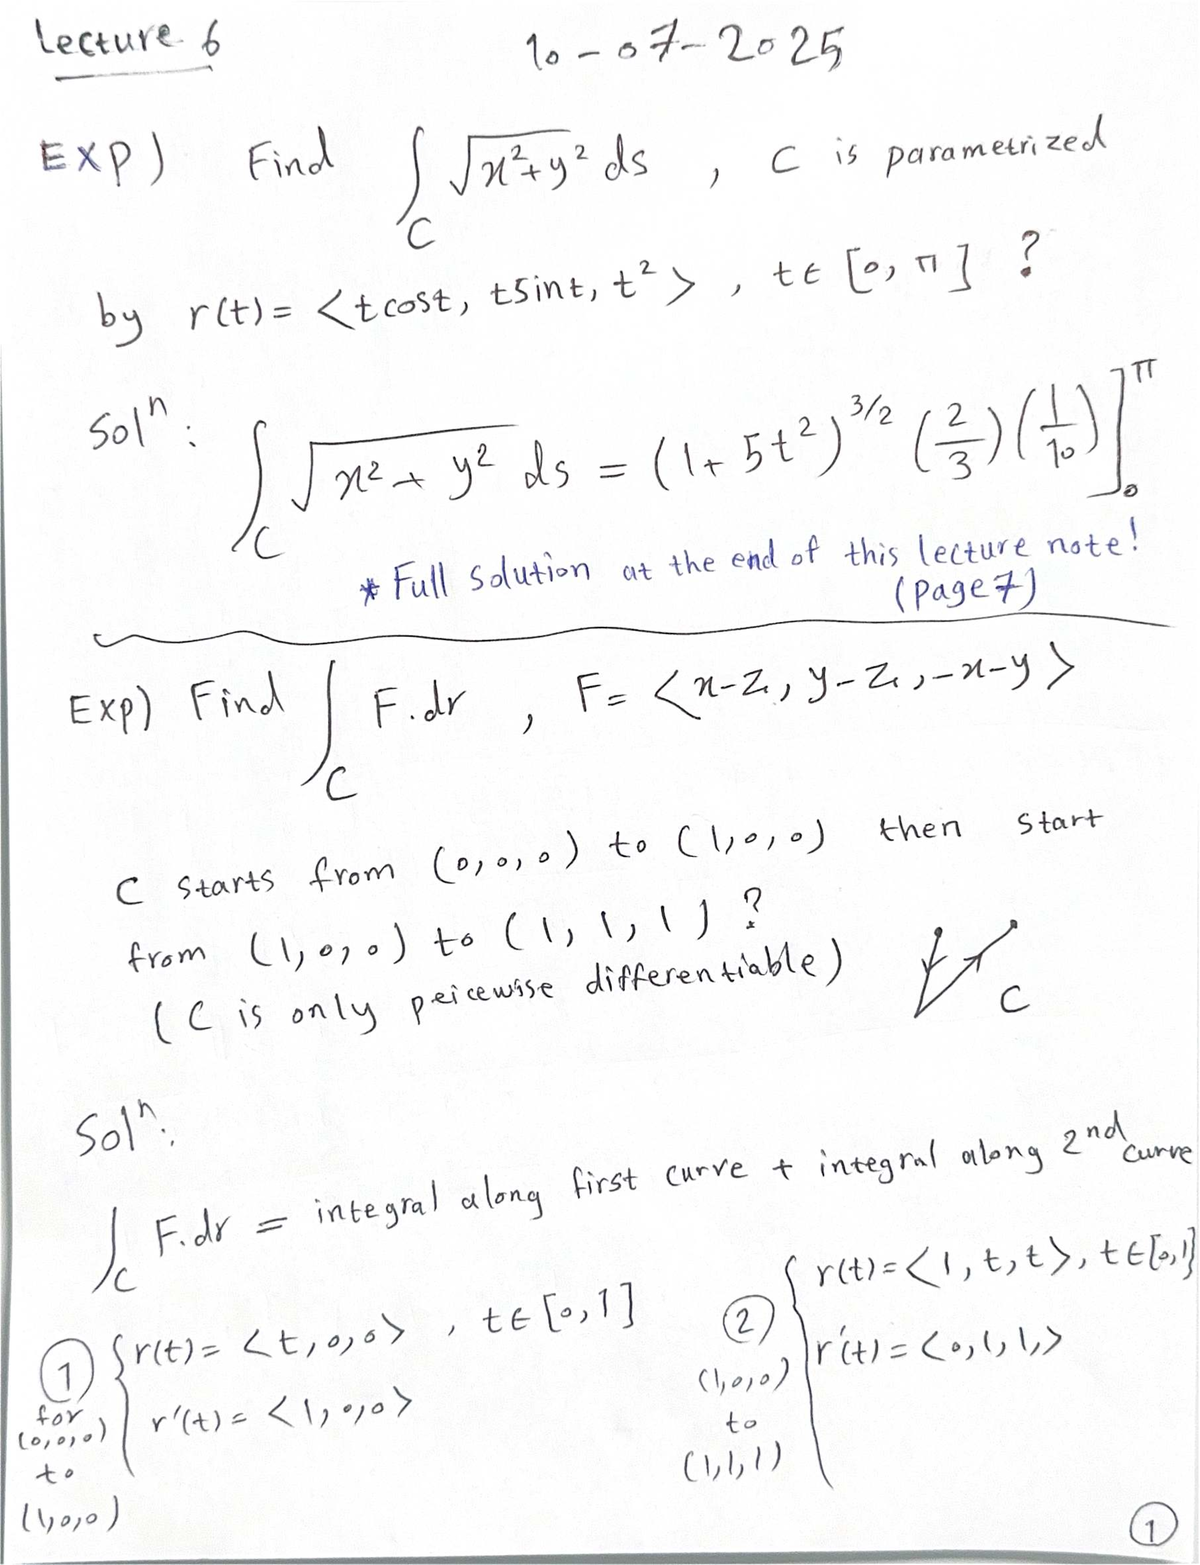 Lecture 6 10-07-2025
EXP) Find ∫_C √(x²+y²) ds , C is parametrized
by r(t) = <t cost, tsint, t²> , t∈ [0, π] ?
Solⁿ: ∫_C √(x² + y²) ds = (1+ 5t²)^(3/2) (2/3)(1/10)]₀^π
* Full solution at the end of this lecture note!
(page 7)
Exp) Find ∫_C F.dr , F = <x-z, y-z, -x-y>
C starts from (0,0,0) to (1,0,0) then start
from (1,0,0) to (1,1,1) ?
(C is only peicewise differentiable)
C
Solⁿ:
∫_C F.dr = integral along first curve + integral along 2nd curve
① for (0,0,0) to (1,0,0) { r(t) = <t,0,0> , t∈ [0,1]
r'(t) = <1,0,0>
② (1,0,0) to (1,1,1) { r(t) = <1,t,t>, t∈[0,1]
r'(t) = <0,1,1,>
①